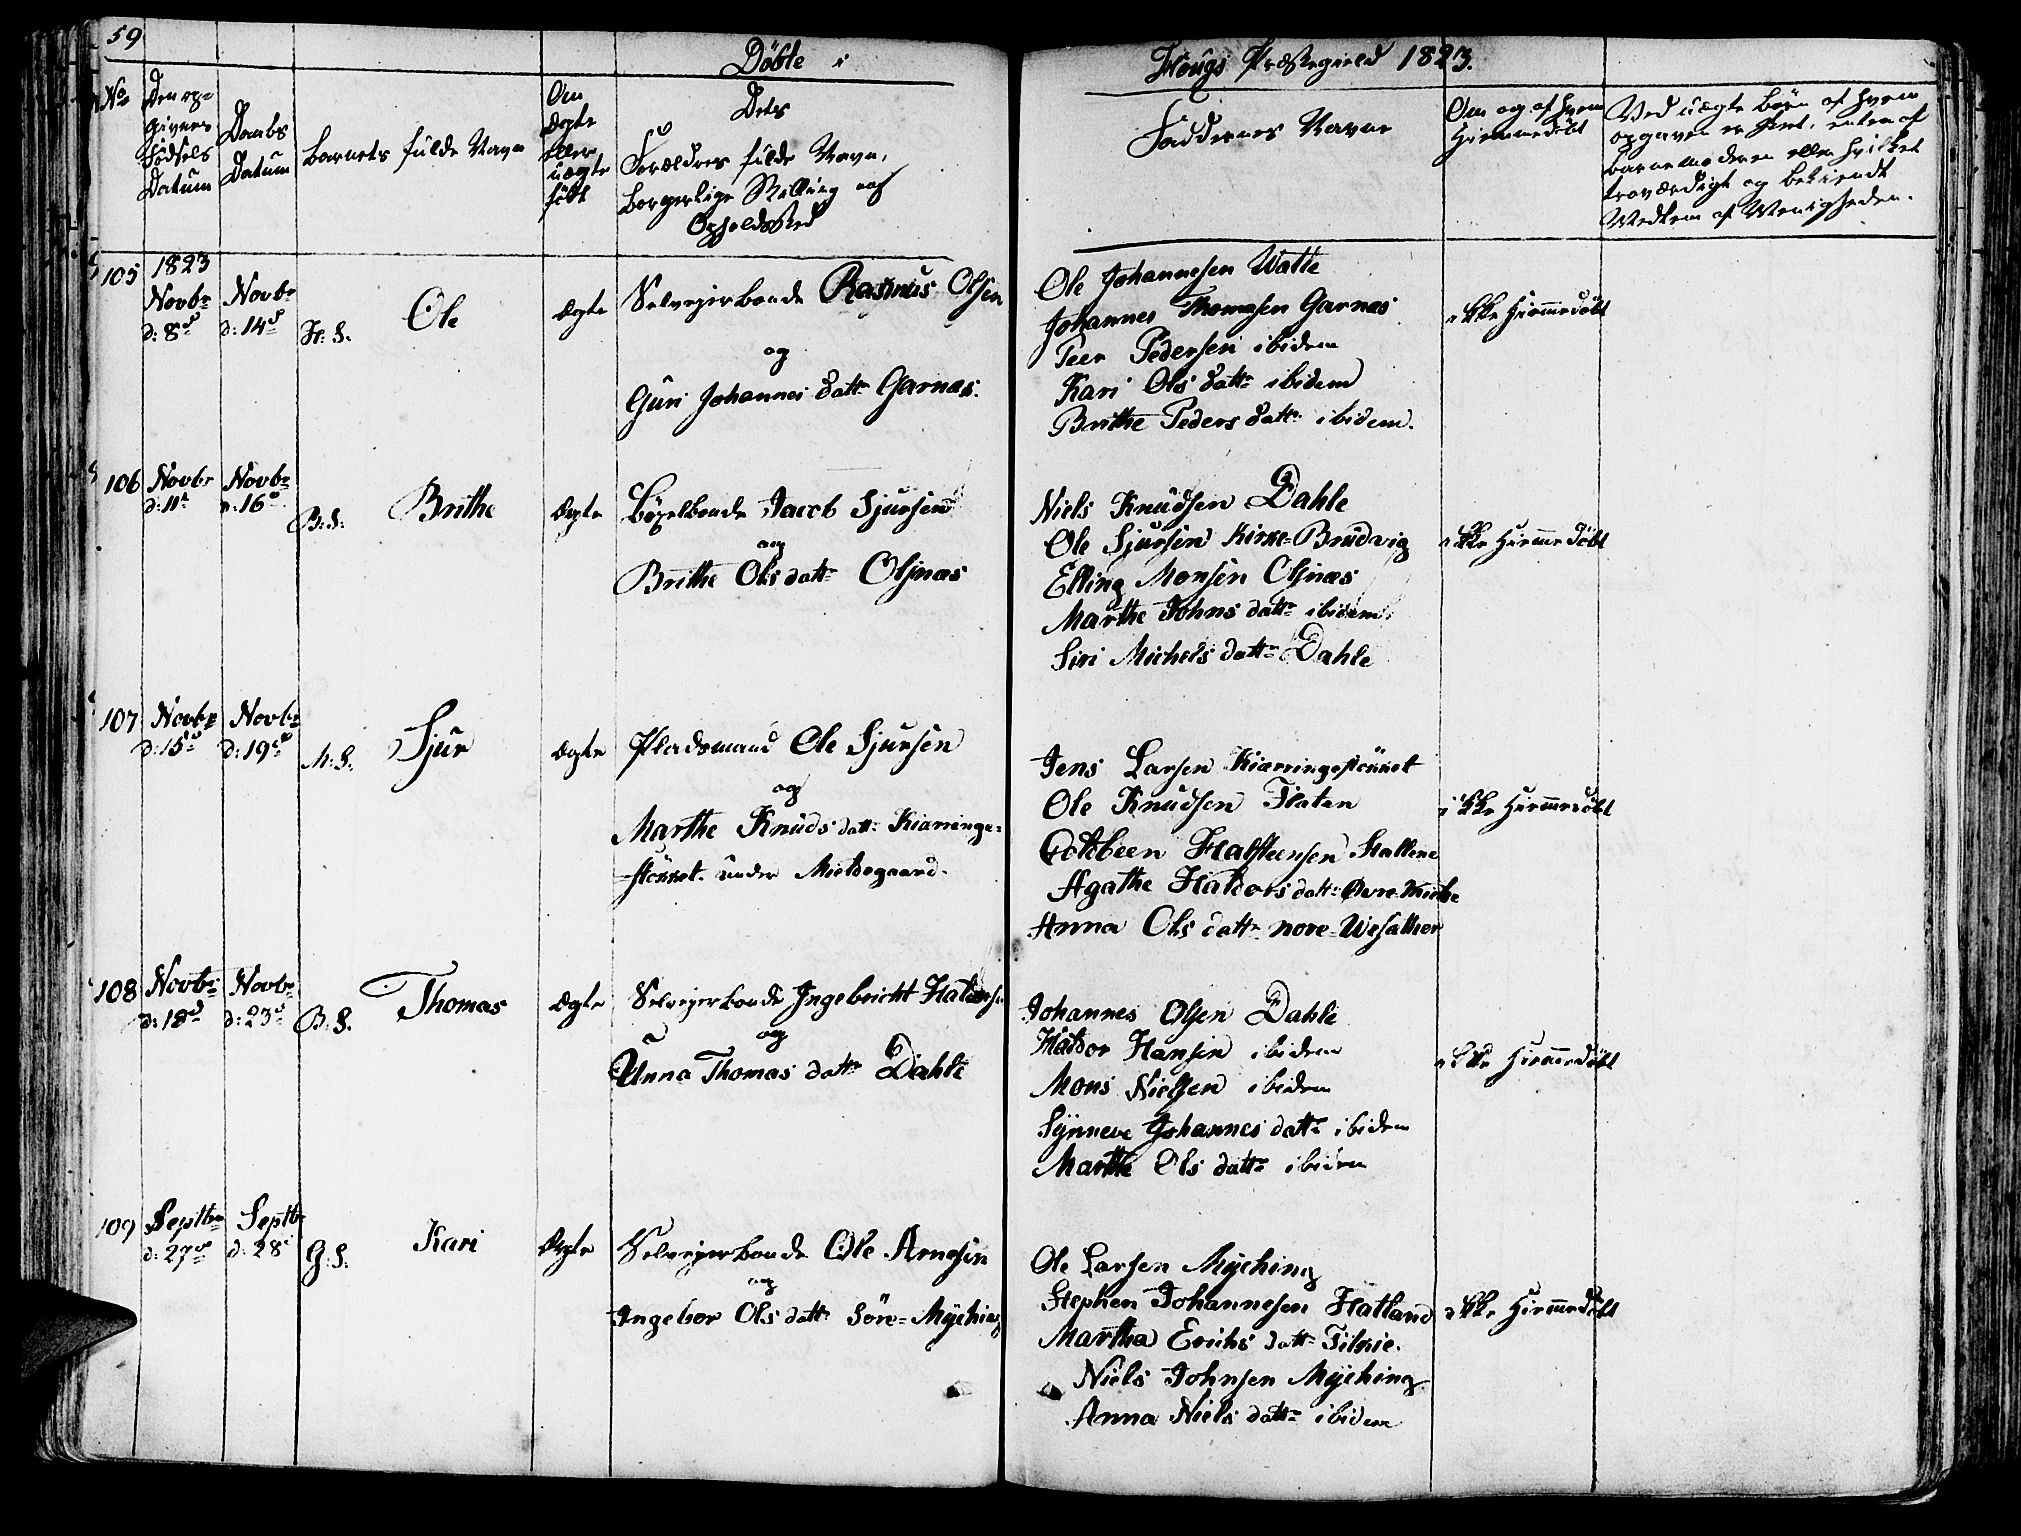 59
Döbte i
Hougs Præstegield 1823.
No
Den op-
givne
Fødsels
Datum
Daabs
Datum
Barnets fulde Navn
Om
Ægte
eller
uægte
født
Dets
Forældres fulde Navn,
borgerlige Stilling og
Opholdssted
Faddernes Navne
Om og af hvem
Hiemmedöbt
Ved uægte Börn af hvem
opgaven er skeet, enten af
Barnemoderen eller hvilket
troværdigt og bekiendt
Medlem af Menigheden.
105
1823
Novbr
d: 8de
Novbr
d: 14de
H: S.
Ole
Ægte
Selveierbonde Rasmus Olsen
og
Guri Johannes dattr Garnæs.
Ole Johannesen Watle
Johannes Thomesen Garnæs
Peer Pedersen ibidem
Kari Ols dattr ibidem
Brithe Peders dattr ibidem.
ikke Hiemmedöbt
106
Novbr
d: 11te
Novbr
d: 16de
B: S.
Brithe
Ægte
Böxelbonde Jacob Sjursen
og
Brithe Ols dattr Olsnæs
Niels Knudsen Dahle
Ole Sjursen Kirke-Brudvig
Elling Monsen Olsnæs
Marthe Johns dattr ibidem.
Siri Michels dattr Dahle
ikke Hiemmedöbt
107
Novbr
d: 15de
Novbr
d: 19de
M: S.
Sjur
Ægte
Pladsmand Ole Sjursen
og
Marthe Knuds dattr Kiærringe-
stökket under Mieldegaard.
Jens Larsen Kiærringestökket
Ole Knudsen Flaten
Halsteensen
Agathe Haldors dattr Øvre-Mielde
Anna Ols dattr nore-
ikke Hiemmedöbt
108
Novbr
d: 18de
Novbr
d: 23de
B: S.
Thomas
Ægte
Selveierbonde Ingebricht Haldorsen
og
Anna Thomas dattr Dahle
Johannes Olsen Dahle
Haldor Hansen ibidem
Mons Nielsen ibidem
Synneve Johannes dattr ibidem
Marthe Ols dattr ibidem
ikke Hiemmedöbt
109
Septbr
d: 27de
Septbr
d: 28de
G: S.
Kari
Ægte
Selveierbonde Ole Arnesen
og
Ingebor Ols dattr Söre-Myching
Ole Larsen Myching
Stephen Johannesen Hatland
Martha Erichs dattr
Niels Johnsen Myching
Anna Niels dattr ibidem
ikke Hiemmedöbt